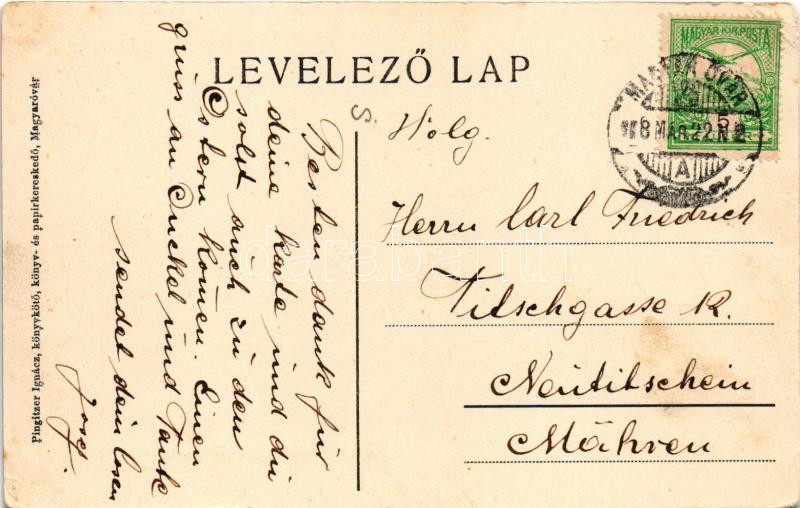 LEVELEZŐ LAP
MAGYAR KIR. POSTA
8 MAR 22 N 2
A
5
S.
Besten dank für
deine karte und du
solst auch zu den
Ostern komen. Einen
gruss an Onckel und Tante
sendet dein
Josef.
Wolg.
Herrn Carl Friedrich
Titschgasse 12.
Neutitschein
Mähren
Pingitzer Ignácz, könyvkötő, könyv- és papirkereskedő, Magyaróvár
darabanth